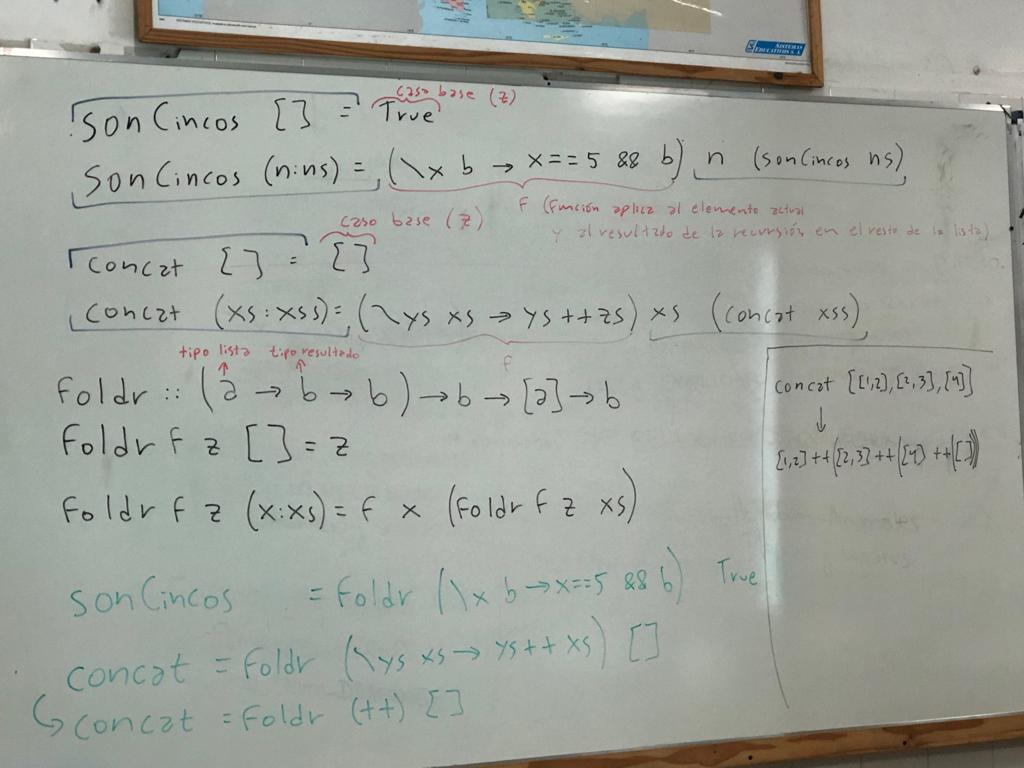 SISTEMAS EDUCATIVOS S.A.
caso base (z)
sonCincos [] = True
sonCincos (n:ns) = (\x b → x==5 && b) n (sonCincos ns)
F (Función aplica al elemento actual
y al resultado de la recursión en el resto de la lista)
caso base (z)
concat [] = []
concat (xs:xss) = (\ys xs → ys ++ zs) xs (concat xss)
F
tipo lista tipo resultado
Foldr :: (a → b → b) → b → [a] → b
Foldr f z [] = z
Foldr f z (x:xs) = f x (Foldr f z xs)
concat [[1,2],[2,3],[4]]
↓
[1,2]++([2,3]++([4] ++([])))
sonCincos = Foldr (\x b → x==5 && b) True
concat = Foldr (\ys xs → ys ++ xs) []
concat = Foldr (++) []